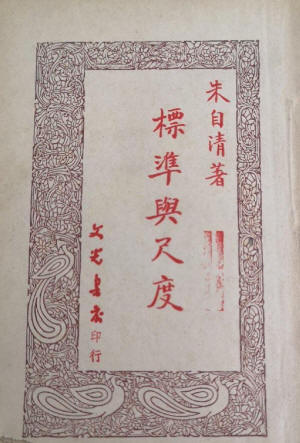 朱自清著
標準與尺度
文光書店
印行